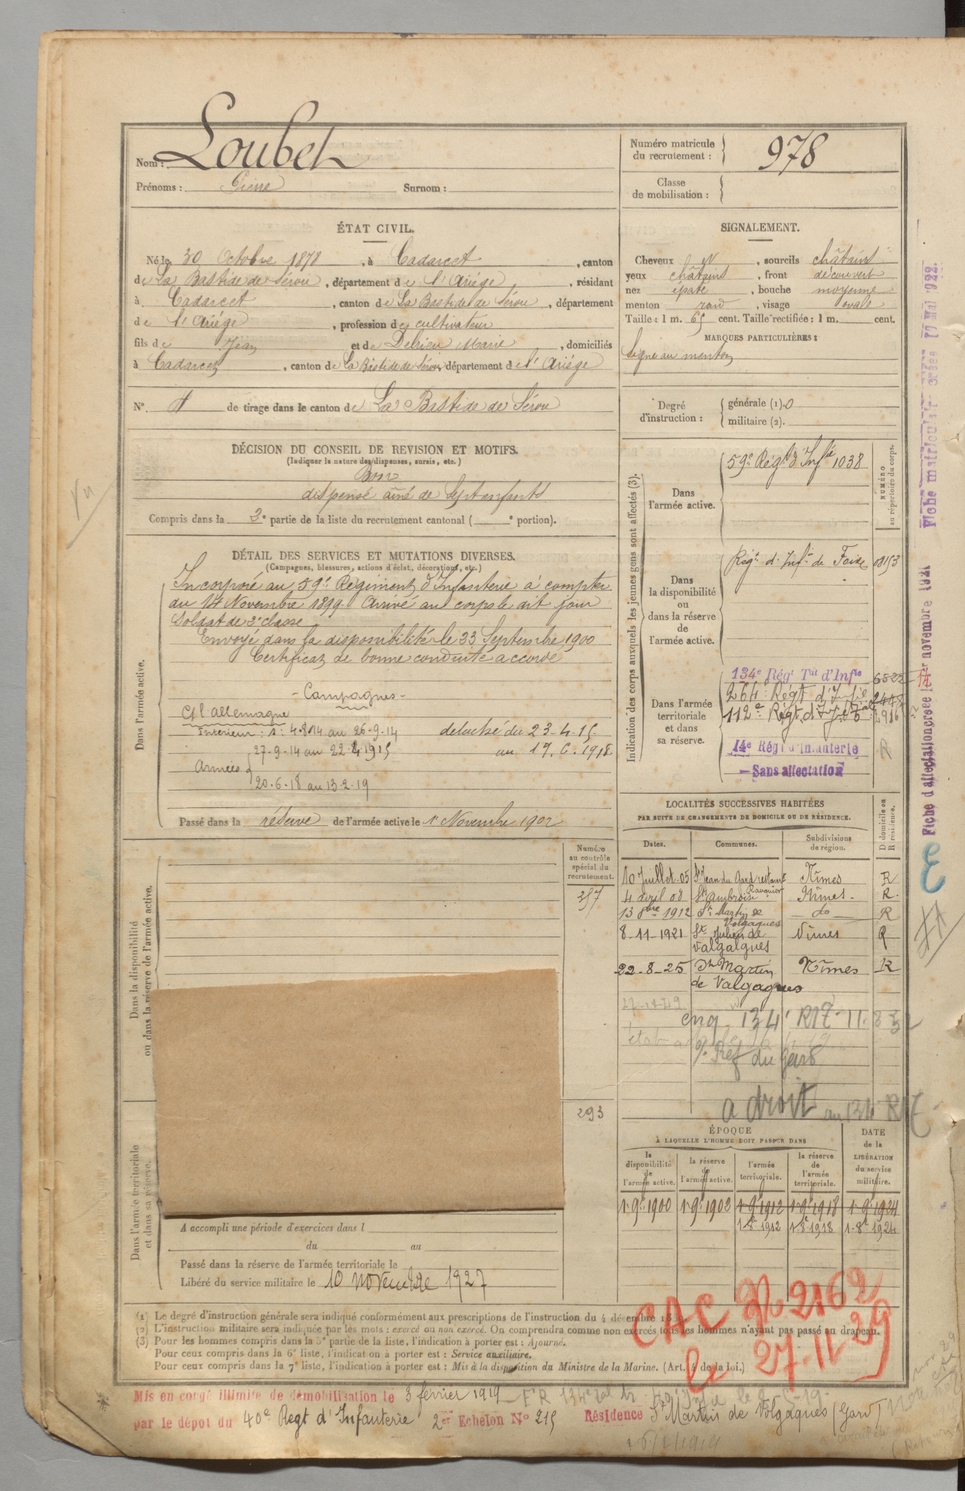 Nom : Loubet
Prénoms : Pierre Surnom :
Numéro matricule du recrutement : 978
Classe de mobilisation :
ÉTAT CIVIL.
Né le 30 Octobre 1878, à Cadarcet, canton
de La Bastide de Sérou, département de l'Ariége, résidant
à Cadarcet, canton de La Bastide de Sérou, département
de l'Ariége, profession de cultivateur
fils de Jean et de Delrieu Marie, domiciliés
à Cadarcet, canton de La Bastide de Sérou département de l'Ariége
SIGNALEMENT.
Cheveux, sourcils châtains
yeux châtains, front découvert
nez épaté, bouche moyenne
menton rond, visage ovale
Taille : 1 m. 65 cent. Taille rectifiée : 1 m. cent.
MARQUES PARTICULIÈRES :
Signe au menton
N° de tirage dans le canton de La Bastide de Sérou
Degré d'instruction : générale (1). 0
militaire (2).
DÉCISION DU CONSEIL DE REVISION ET MOTIFS.
(Indiquer la nature des dispenses, sursis, etc.)
Bon
dispensé aîné de sept enfants
Compris dans la 3e partie de la liste du recrutement cantonal ( e portion).
Vu
DÉTAIL DES SERVICES ET MUTATIONS DIVERSES.
(Campagnes, blessures, actions d'éclat, décorations, etc.)
Dans l'armée active.
Incorporé au 59e Régiment d'Infanterie à compter
du 14 Novembre 1899. Arrivé au corps le dit jour
Soldat de 2e classe
Envoyé dans la disponibilité le 23 Septembre 1900
Certificat de bonne conduite accordé
- Campagnes -
C/ l'allemagne
Intérieur : s : 4-8-14 au 26-9-14 détaché du 23-4-15
27-9-14 au 22-4-1915 au 19.6.1918
Armées
20-6-18 au 13-2-19
Passé dans la réserve de l'armée active le 1er Novembre 1902
Indication des corps auxquels les jeunes gens sont affectés (3).
NUMÉRO au répertoire du corps.
Dans l'armée active. 59e Régt d'Infie 1038
Dans la disponibilité ou dans la réserve de l'armée active. Régt d'Inft de Foix
Dans l'armée territoriale et dans sa réserve.
134e Régt Tal d'Infie
264e Régt d'Infie
112e Régt d'Infie
14e Régt d'Infanterie
— Sans affectation
Fiche d'affectation créée le 1er novembre 1921
Fiche matriculaire créée 10 Mai 1922.
LOCALITÉS SUCCESSIVES HABITÉES
PAR SUITE DE CHANGEMENTS DE DOMICILE OU DE RÉSIDENCE.
Dates. Communes. Subdivisions de région. D domicile ou R résidence.
10 Juillet 05 Nîmes R
4 avril 08 St Ambroix Nîmes - R.
13 8bre 1912 St Martin de Valgagues do R
8-11-1921 St Julien de Valgalgues Nîmes R
22-8-25 St Martin de Valgagues Nîmes R
Pref du Gard
a droit au 134 RIT
Dans la disponibilité ou dans la réserve de l'armée active.
Numéro au contrôle spécial du recrutement.
257
293
Dans l'armée territoriale et dans sa réserve.
A accompli une période d'exercices dans l
du au
Passé dans la réserve de l'armée territoriale le
Libéré du service militaire le 10 novembre 1927
ÉPOQUE
À LAQUELLE L'HOMME DOIT PASSER DANS
la disponibilité de l'armée active. la réserve de l'armée active. l'armée territoriale. la réserve de l'armée territoriale. DATE de la LIBÉRATION du service militaire.
1-9e 1900 1-9e 1902 1-9e 1912 1-9e 1918 1-9e 1924
1-8e 1912 1-8e 1918 1-8e 1924
(1) Le degré d'instruction générale sera indiqué conformément aux prescriptions de l'instruction du 4 décembre
(2) L'instruction militaire sera indiquée par les mots : exercé ou non exercé. On comprendra comme non exercés tous les hommes n'ayant pas passé au drapeau.
(3) Pour les hommes compris dans la 5e partie de la liste, l'indication à porter est : Ajourné.
Pour ceux compris dans la 6e liste, l'indication à porter est : Service auxiliaire.
Pour ceux compris dans la 7e liste, l'indication à porter est : Mis à la disposition du Ministre de la Marine. (Art. 4 de la loi.)
CAC N° 2162
le 27-11-29
Mis en congé illimité de démobilisation le 3 février 1919
par le dépôt du 40e Regt d'Infanterie 2er Echelon N° 215 Résidence St Martin de Valgagues (Gard)